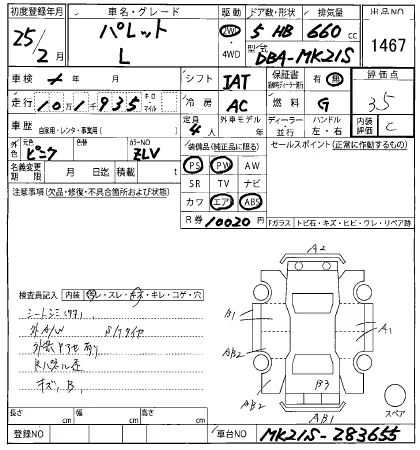 初度登録年月 車名・グレード 駆動 ドア数・形状 排気量 出品NO
25年 パレット 2WD 5 HB 660cc
2月 L ・4WD 型式 DBA-MK21S 1467
車検 年 月 シフト IAT 保証書 有・無 評価点
走行 10万1千935 キロ・マイル 冷房 AC 燃料 G 3.5
車歴 自家用・レンタ・事業用( ) 定員 4人 外車モデル年 ディーラー・並行 ハンドル 左・右 内装評価 C
外色 元色 ピンク 色替 カラーNO ZLV 装備品(純正品に限る) セールスポイント(正常に作動するもの)
名義変更期限 月 日迄 積載 t PS PW AW
注意事項(欠品・修復・不具合箇所および状態) SR TV ナビ
カワ エアB ABS
R券 10020円 Fガラス トビ石・キズ・ヒビ・ワレ・リペア跡
A2
検査員記入 内装 ・スレ・キズ・キレ・コゲ・穴
B1
A1
外A/W
AB2
キズ、B、
B3
AB2
AB1
スペア
長さ cm 幅 cm 高さ cm
登録NO 車台NO MK21S-283655